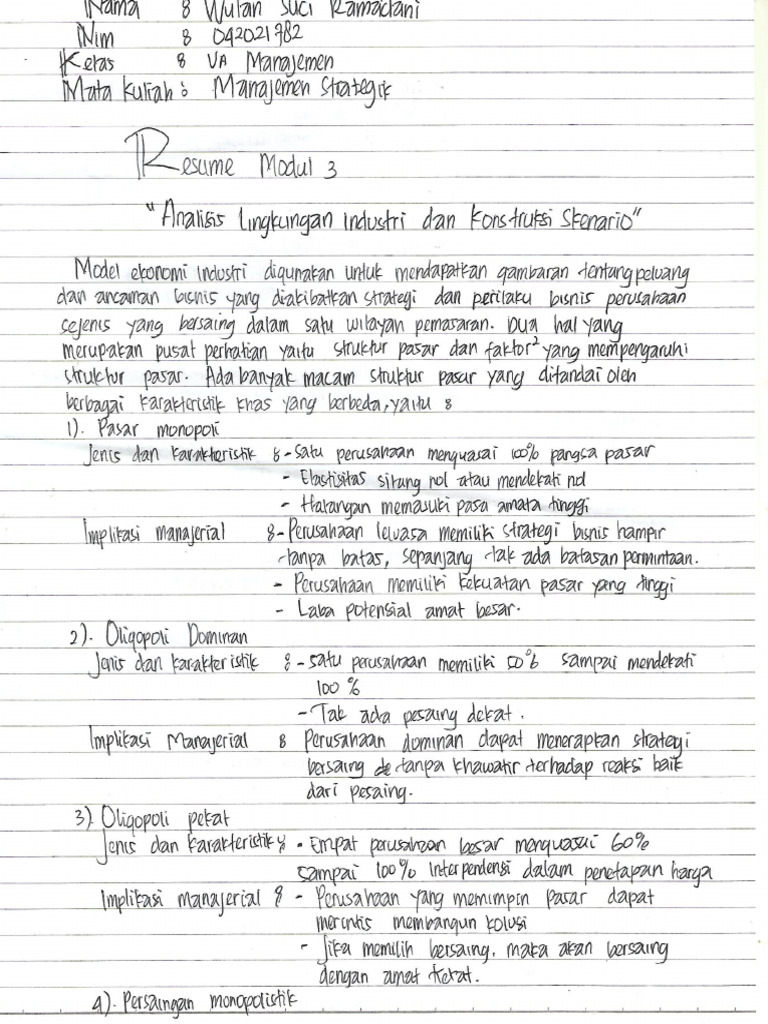 Nama : Wulan Suci Ramadani
Nim : 042021782
Kelas : VA Manajemen
Mata Kuliah : Manajemen Strategik
Resume Modul 3
"Analisis Lingkungan industri dan Konstruksi Skenario"
Model ekonomi industri digunakan untuk mendapatkan gambaran tentang peluang
dan ancaman bisnis yang diakibatkan strategi dan perilaku bisnis perusahaan
sejenis yang bersaing dalam satu wilayah pemasaran. Dua hal yang
merupakan pusat perhatian yaitu struktur pasar dan faktor² yang mempengaruhi
struktur pasar. Ada banyak macam struktur pasar yang ditandai oleh
berbagai karakteristik khas yang berbeda, yaitu :
1). Pasar monopoli
Jenis dan karakteristik : - Satu perusahaan menguasai 100% pangsa pasar
- Elastisitas silang nol atau mendekati nol
- Halangan memasuki pasa amata tinggi
Implikasi manajerial : - Perusahaan leluasa memiliki strategi bisnis hampir
tanpa batas, sepanjang tak ada batasan permintaan.
- Perusahaan memiliki kekuatan pasar yang tinggi
- Laba potensial amat besar.
2). Oligopoli Dominan
Jenis dan karakteristik : - satu perusahaan memiliki 50% sampai mendekati
100 %
- Tak ada pesaing dekat.
Implikasi Manajerial : Perusahaan dominan dapat menerapkan strategi
bersaing tanpa khawatir terhadap reaksi baik
dari pesaing.
3) Oligopoli pekat
Jenis dan karakteristik : - Empat perusahaan besar menguasai 60%
sampai 100% interpendensi dalam penetapan harga
Implikasi manajerial : - Perusahaan yang memimpin pasar dapat
merintis membangun kolusi
- Jika memilih bersaing, maka akan bersaing
dengan amat ketat.
4). Persaingan monopolistik